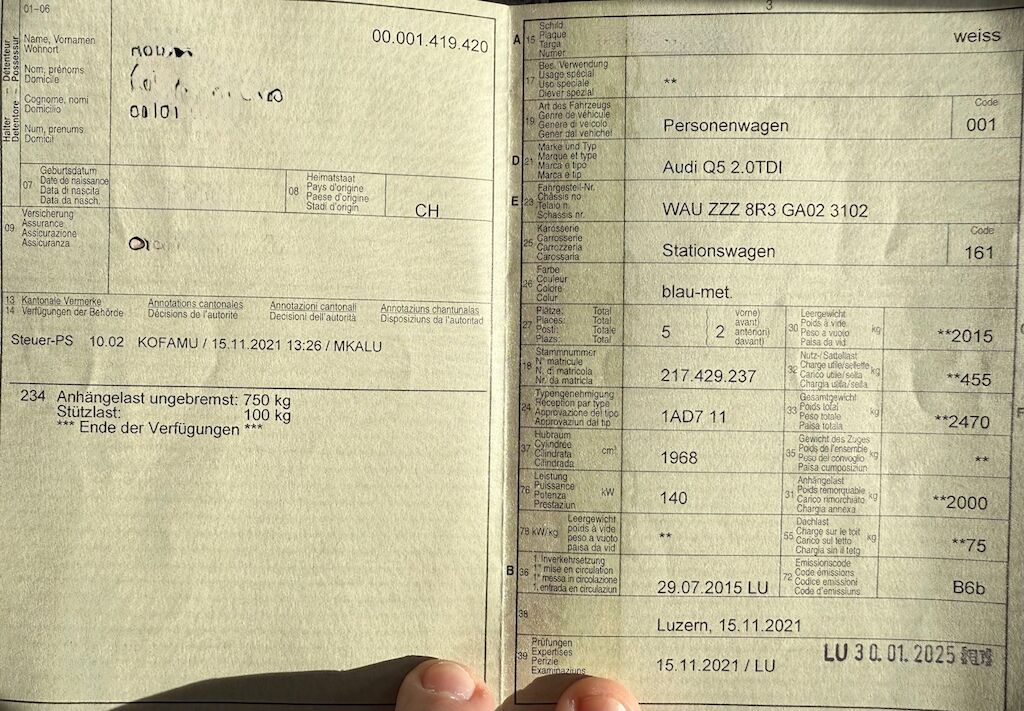 01-06
Halter - Détenteur
Detentore - Possessur
Name, Vornamen
Wohnort
Nom, prénoms
Domicile
Cognome, nomi
Domicilio
Num, prenums
Domicil
00.001.419.420
07
Geburtsdatum
Date de naissance
Data di nascita
Data da nasch.
08
Heimatstaat
Pays d'origine
Paese d'origine
Stadi d'origin
CH
09
Versicherung
Assurance
Assicurazione
Assicuranza
13 Kantonale Vermerke
14 Verfügungen der Behörde
Annotations cantonales
Décisions de l'autorité
Annotazioni cantonali
Decisioni dell'autorità
Annotaziuns chantunalas
Disposiziuns da l'autoritad
Steuer-PS 10.02 KOFAMU / 15.11.2021 13:26 / MKALU
234 Anhängelast ungebremst: 750 kg
Stützlast: 100 kg
*** Ende der Verfügungen ***
3
A 15
Schild
Plaque
Targa
Numer
weiss
17
Bes. Verwendung
Usage spécial
Uso speciale
Diever spezial
**
19
Art des Fahrzeugs
Genre de véhicule
Genere di veicolo
Gener dal vehichel
Personenwagen
Code
001
D 21
Marke und Typ
Marque et type
Marca e tipo
Marca e tip
Audi Q5 2.0TDI
E 23
Fahrgestell-Nr.
Châssis no
Telaio n.
Schassis nr.
WAU ZZZ 8R3 GA02 3102
25
Karosserie
Carrosserie
Carrozzeria
Carossaria
Stationswagen
Code
161
26
Farbe
Couleur
Colore
Colur
blau-met.
27
Plätze: Total
Places: Total
Posti: Totale
Plazs: Total
5 ( 2
vorne)
avant)
anteriori)
davant)
30
Leergewicht
Poids à vide
Peso a vuoto
Paisa da vid
kg
**2015
18
Stammnummer
N° matricule
N. di matricola
Nr. da matricla
217.429.237
32
Nutz-/Sattellast
Charge utile/sellette
Carico utile/sella
Chargia utila/sella
kg
**455
24
Typengenehmigung
Réception par type
Approvazione del tipo
Approvaziun dal tip
1AD7 11
33
Gesamtgewicht
Poids total
Peso totale
Paisa totala
kg
**2470
37
Hubraum
Cylindrée
Cilindrata
Cilindrada
cm³
1968
35
Gewicht des Zuges
Poids de l'ensemble
Peso del convoglio
Paisa cumposiziun
kg
**
76
Leistung
Puissance
Potenza
Prestaziun
kW
140
31
Anhängelast
Poids remorquable
Carico rimorchiato
Chargia annexa
kg
**2000
78 kW/kg
Leergewicht
poids à vide
peso a vuoto
paisa da vid
**
55
Dachlast
Charge sur le toit
Carico sul tetto
Chargia sin il tetg
kg
**75
B 36
1. Inverkehrsetzung
1re mise en circulation
1a messa in circolazione
1. entrada en circulaziun
29.07.2015 LU
72
Emissionscode
Code émissions
Codice emissioni
Code d'emissiuns
B6b
38
Luzern, 15.11.2021
39
Prüfungen
Expertises
Perizie
Examinaziuns
15.11.2021 / LU
LU 30.01.2025